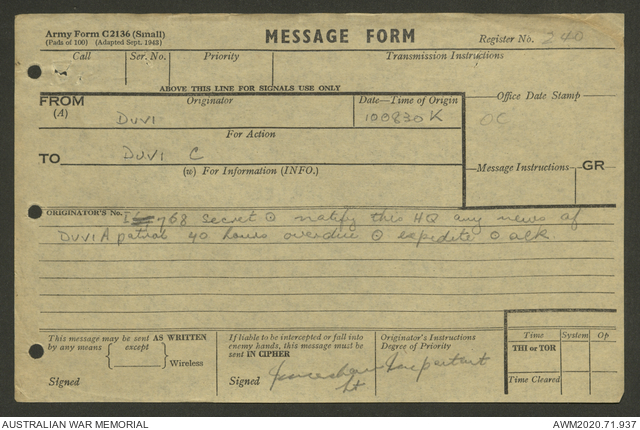 Army Form C2136 (Small)
(Pads of 100) (Adapted Sept. 1943)
MESSAGE FORM
Register No. 240
Call Ser. No. Priority Transmission Instructions
ABOVE THIS LINE FOR SIGNALS USE ONLY
FROM
(A)
Originator
DUVI
Date—Time of Origin
100830K
Office Date Stamp
OC
For Action
TO
DUVI C
(w) For Information (INFO.)
Message Instructions GR
ORIGINATOR'S No. 768 secret ʘ notify this HQ any news of
DUVI A patrol 40 hours overdue ʘ expedite ʘ ack.
This message may be sent AS WRITTEN
by any means except
Wireless
Signed
If liable to be intercepted or fall into
enemy hands, this message must be
sent IN CIPHER
Signed
Lt
Originator's Instructions
Degree of Priority
Important
Time System Op
THI or TOR
Time Cleared
AUSTRALIAN WAR MEMORIAL
AWM2020.71.937